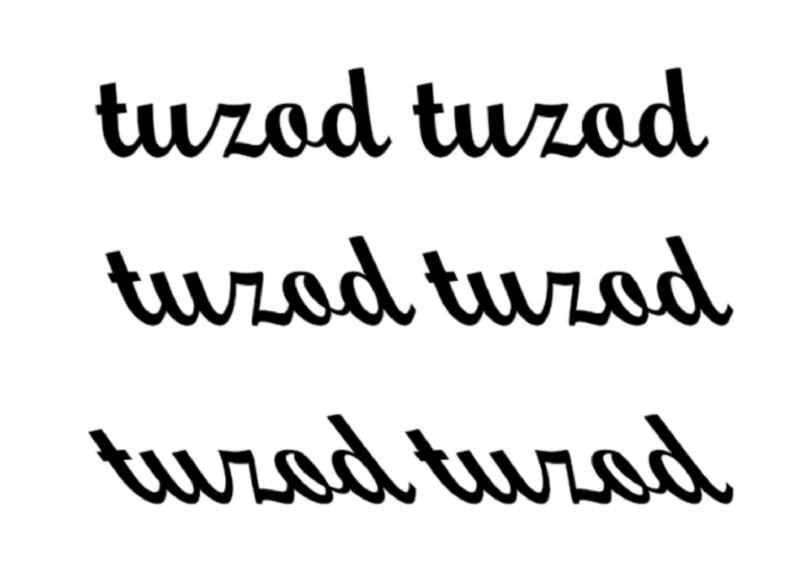 tuzod tuzod
tuzod tuzod
tuzod tuzod